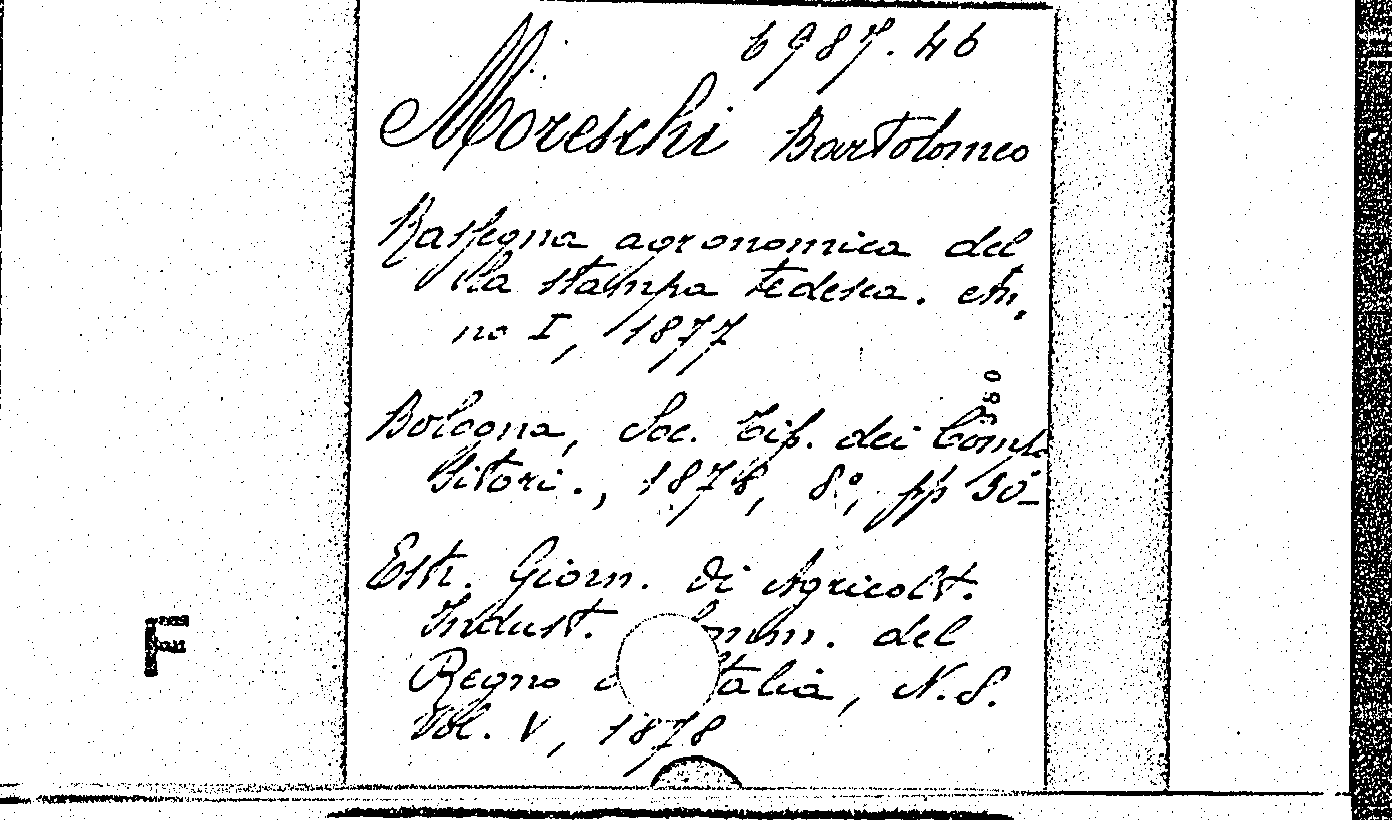 6987.46
Moreschi Bartolomeo
Rassegna agronomica del
la stampa tedesca. An,
no I, 1877
Bologna, Soc. Tip. dei Compo
sitori., 1878, 8º, pp 50
Estr. Giorn. di Agricolt.
Indust. Comm. del
Regno d'Italia, N.S.
Vol. V, 1878
F